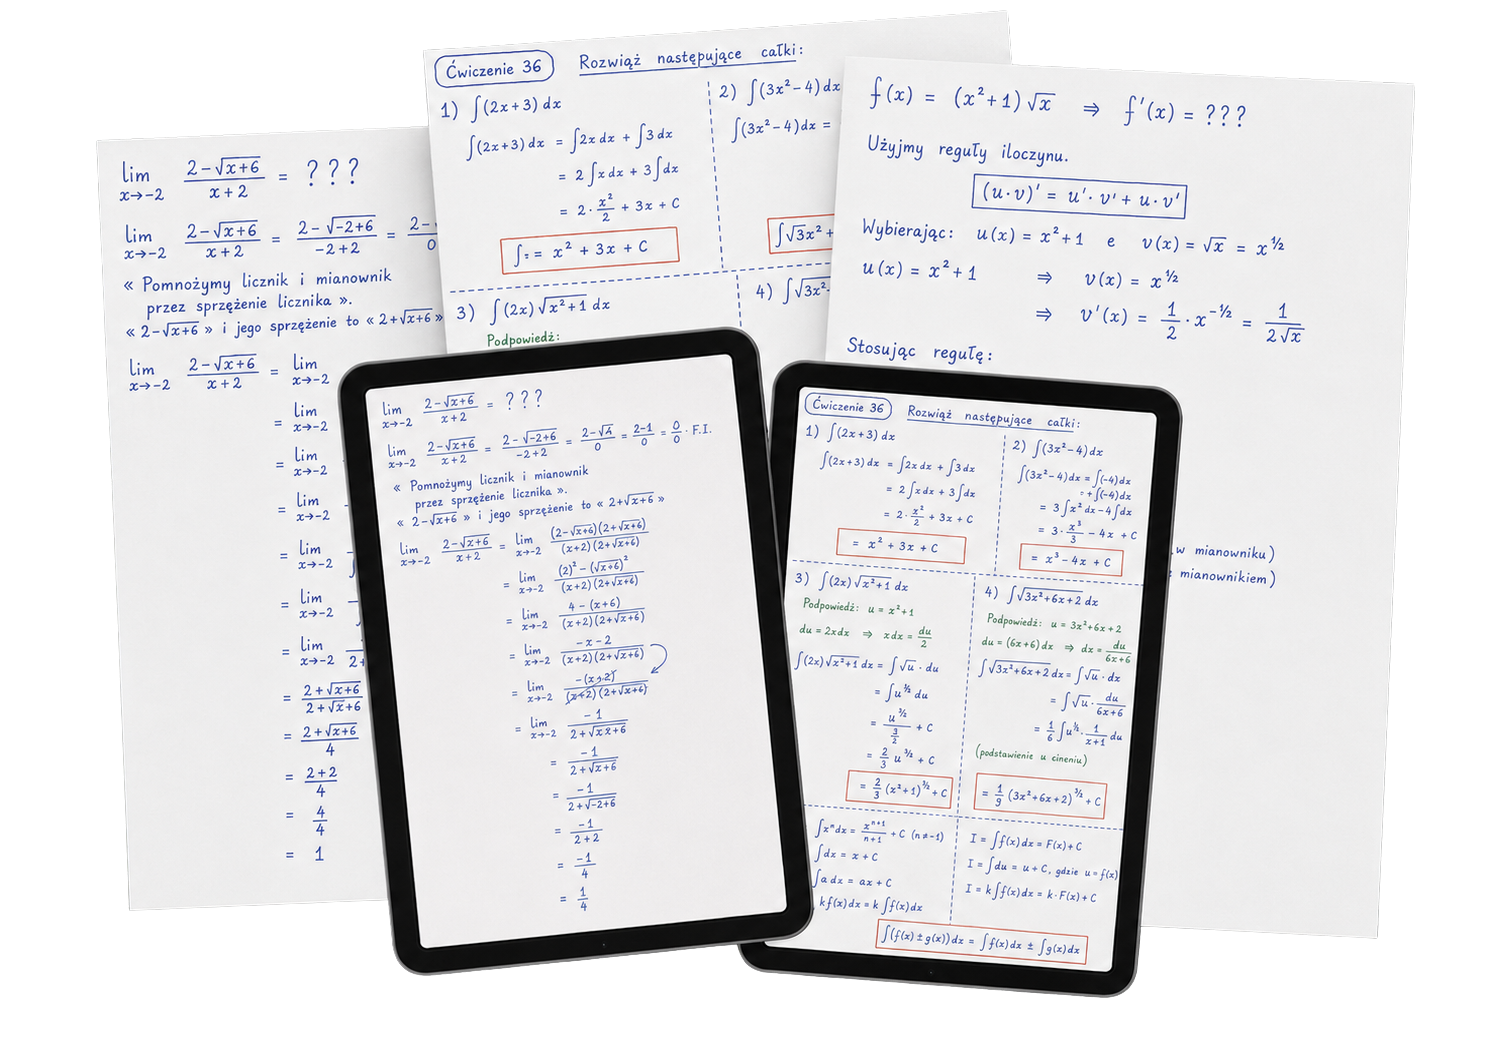 lim x→-2 (2-√(x+6))/(x+2) = ???
lim x→-2 (2-√(x+6))/(x+2) = (2-√(-2+6))/(-2+2) = 2- / 0
« Pomnożymy licznik i mianownik
przez sprzężenie licznika ».
« 2-√(x+6) » i jego sprzężenie to « 2+√(x+6) »
lim x→-2 (2-√(x+6))/(x+2) = lim x→-2
= lim x→-2
= lim x→-2
= lim x→-2
= lim x→-2
= lim x→-2
= lim x→-2 2+
= (2+√(x+6))/(2+√x+6)
= (2+√(x+6))/4
= (2+2)/4
= 4/4
= 1
Ćwiczenie 36 Rozwiąż następujące całki:
1) ∫(2x+3) dx
∫(2x+3) dx = ∫2x dx + ∫3 dx
= 2∫x dx + 3∫dx
= 2·x²/2 + 3x + C
∫: = x² + 3x + C
2) ∫(3x²-4) dx
∫(3x²-4) dx =
∫√3x² +
3) ∫(2x)√(x²+1) dx
Podpowiedź:
4) ∫√3x²-
f(x) = (x²+1)√x ⇒ f'(x) = ???
Użyjmy reguły iloczynu.
(u·v)' = u'·v' + u·v'
Wybierając: u(x) = x²+1 e v(x) = √x = x^½
u(x) = x²+1 ⇒ v(x) = x^½
⇒ v'(x) = 1/2·x^-½ = 1/(2√x)
Stosując regułę:
w mianowniku)
mianownikiem)
lim x→-2 (2-√(x+6))/(x+2) = ???
lim x→-2 (2-√(x+6))/(x+2) = (2-√(-2+6))/(-2+2) = (2-√4)/0 = (2-1)/0 = 0/0 · F.I.
« Pomnożymy licznik i mianownik
przez sprzężenie licznika ».
« 2-√(x+6) » i jego sprzężenie to « 2+√(x+6) »
lim x→-2 (2-√(x+6))/(x+2) = lim x→-2 ((2-√(x+6))(2+√(x+6)))/((x+2)(2+√(x+6)))
= lim x→-2 ((2)²-(√(x+6))²)/((x+2)(2+√(x+6)))
= lim x→-2 (4-(x+6))/((x+2)(2+√(x+6)))
= lim x→-2 (-x-2)/((x+2)(2+√(x+6)))
= lim x→-2 (-(x+2))/((x+2)(2+√(x+6)))
= lim x→-2 -1/(2+√(x2+6))
= -1/(2+√(x+6))
= -1/(2+√(-2+6))
= -1/(2+2)
= -1/4
= 1/4
Ćwiczenie 36 Rozwiąż następujące całki:
1) ∫(2x+3) dx
∫(2x+3) dx = ∫2x dx + ∫3dx
= 2∫x dx + 3∫dx
= 2·x²/2 + 3x + C
= x² + 3x + C
2) ∫(3x²-4) dx
∫(3x²-4) dx = ∫(-4) dx
= + ∫(-4) dx
= 3∫x² dx - 4∫dx
= 3·x³/3 - 4x + C
= x³ - 4x + C
3) ∫(2x)√(x²+1) dx
Podpowiedź: u = x²+1
du = 2xdx ⇒ xdx = du/2
∫(2x)√(x²+1) dx = ∫√u · du
= ∫u^½ du
= u^(3/2)/(3/2) + C
= 2/3 u^(3/2) + C
= 2/3 (x²+1)^(3/2) + C
4) ∫√(3x²+6x+2) dx
Podpowiedź: u = 3x²+6x+2
du = (6x+6) dx ⇒ dx = du/(6x+6)
∫√(3x²+6x+2) dx = ∫√u · dx
= ∫√u · du/(6x+6)
= 1/6 ∫u^½ · 1/(x+1) du
(podstawienie u cineniu)
= 1/9 (3x²+6x+2)^(3/2) + C
∫xⁿdx = x^(n+1)/(n+1) + C (n≠-1)
∫dx = x + C
∫a dx = ax + C
kf(x)dx = k∫f(x)dx
I = ∫f(x)dx = F(x)+C
I = ∫du = u + C, gdzie u = f(x)
I = k∫f(x)dx = k·F(x) + C
∫(f(x) ± g(x))dx = ∫f(x)dx ± ∫g(x)dx